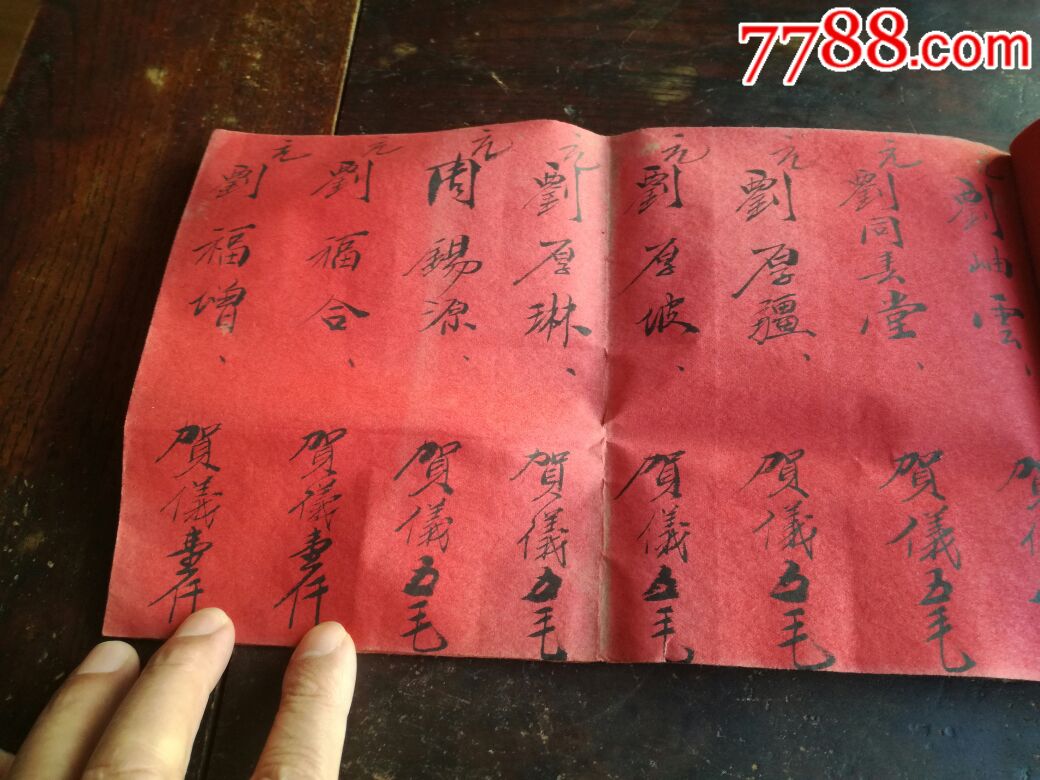 7788.com
元 劉岫雲、 賀
元 劉同春堂、 賀儀五毛
元 劉厚疆、 賀儀五毛
元 劉厚坡、 賀儀五毛
元 劉厚琳、 賀儀五毛
元 周錫源、 賀儀五毛
元 劉福合、 賀儀壹仟
元 劉福增、 賀儀壹仟